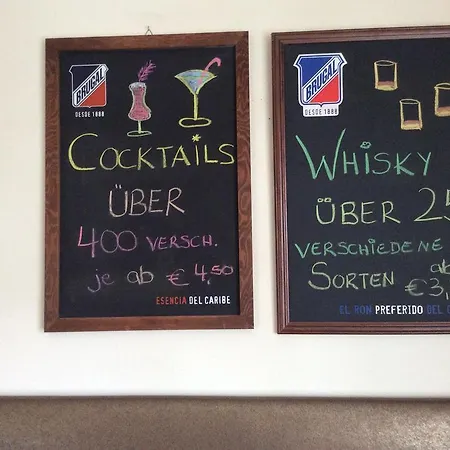 BRUGAL
DESDE 1888
COCKTAILS
ÜBER
400 VERSCH.
je ab € 4,50
ESENCIA DEL CARIBE
BRUGAL
DESDE 1888
WHISKY
ÜBER 25
VERSCHIEDENE
SORTEN ab
€3,
EL RON PREFERIDO DEL